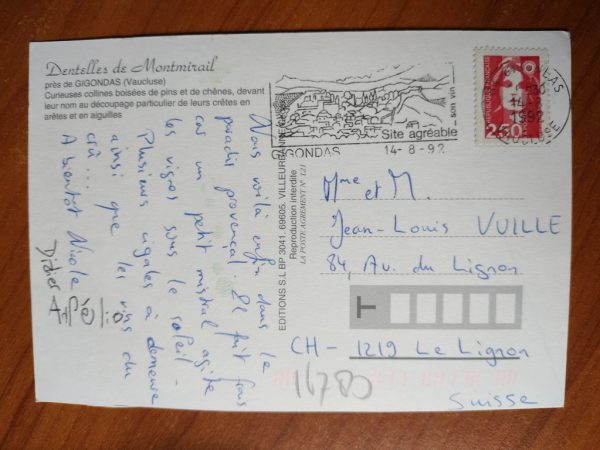 Dentelles de Montmirail
près de GIGONDAS (Vaucluse)
Curieuses collines boisées de pins et de chênes, devant
leur nom au découpage particulier de leurs crêtes en
arêtes et en aiguilles
Nous voilà enfin dans le
paradis provençal. Il fait
car un petit mistral agite
les vignes sous le soleil -
Plusieurs cigales à demeure
ainsi que les vins du
crû...
A bientôt Nicole
Didier
EDITIONS S.L BP 3041, 69605, VILLEURBANNE
Reproduction interdite
LA POSTE AGREMENT N° 121
Site agréable
son vin
GIGONDAS
14-8-92
RÉPUBLIQUE FRANÇAISE
2,50
14-8
1992
VAUCLUSE
Mme et M.
Jean-Louis VUILLE
84, Av. du Lignon
CH - 1219 Le Lignon
Suisse
16780